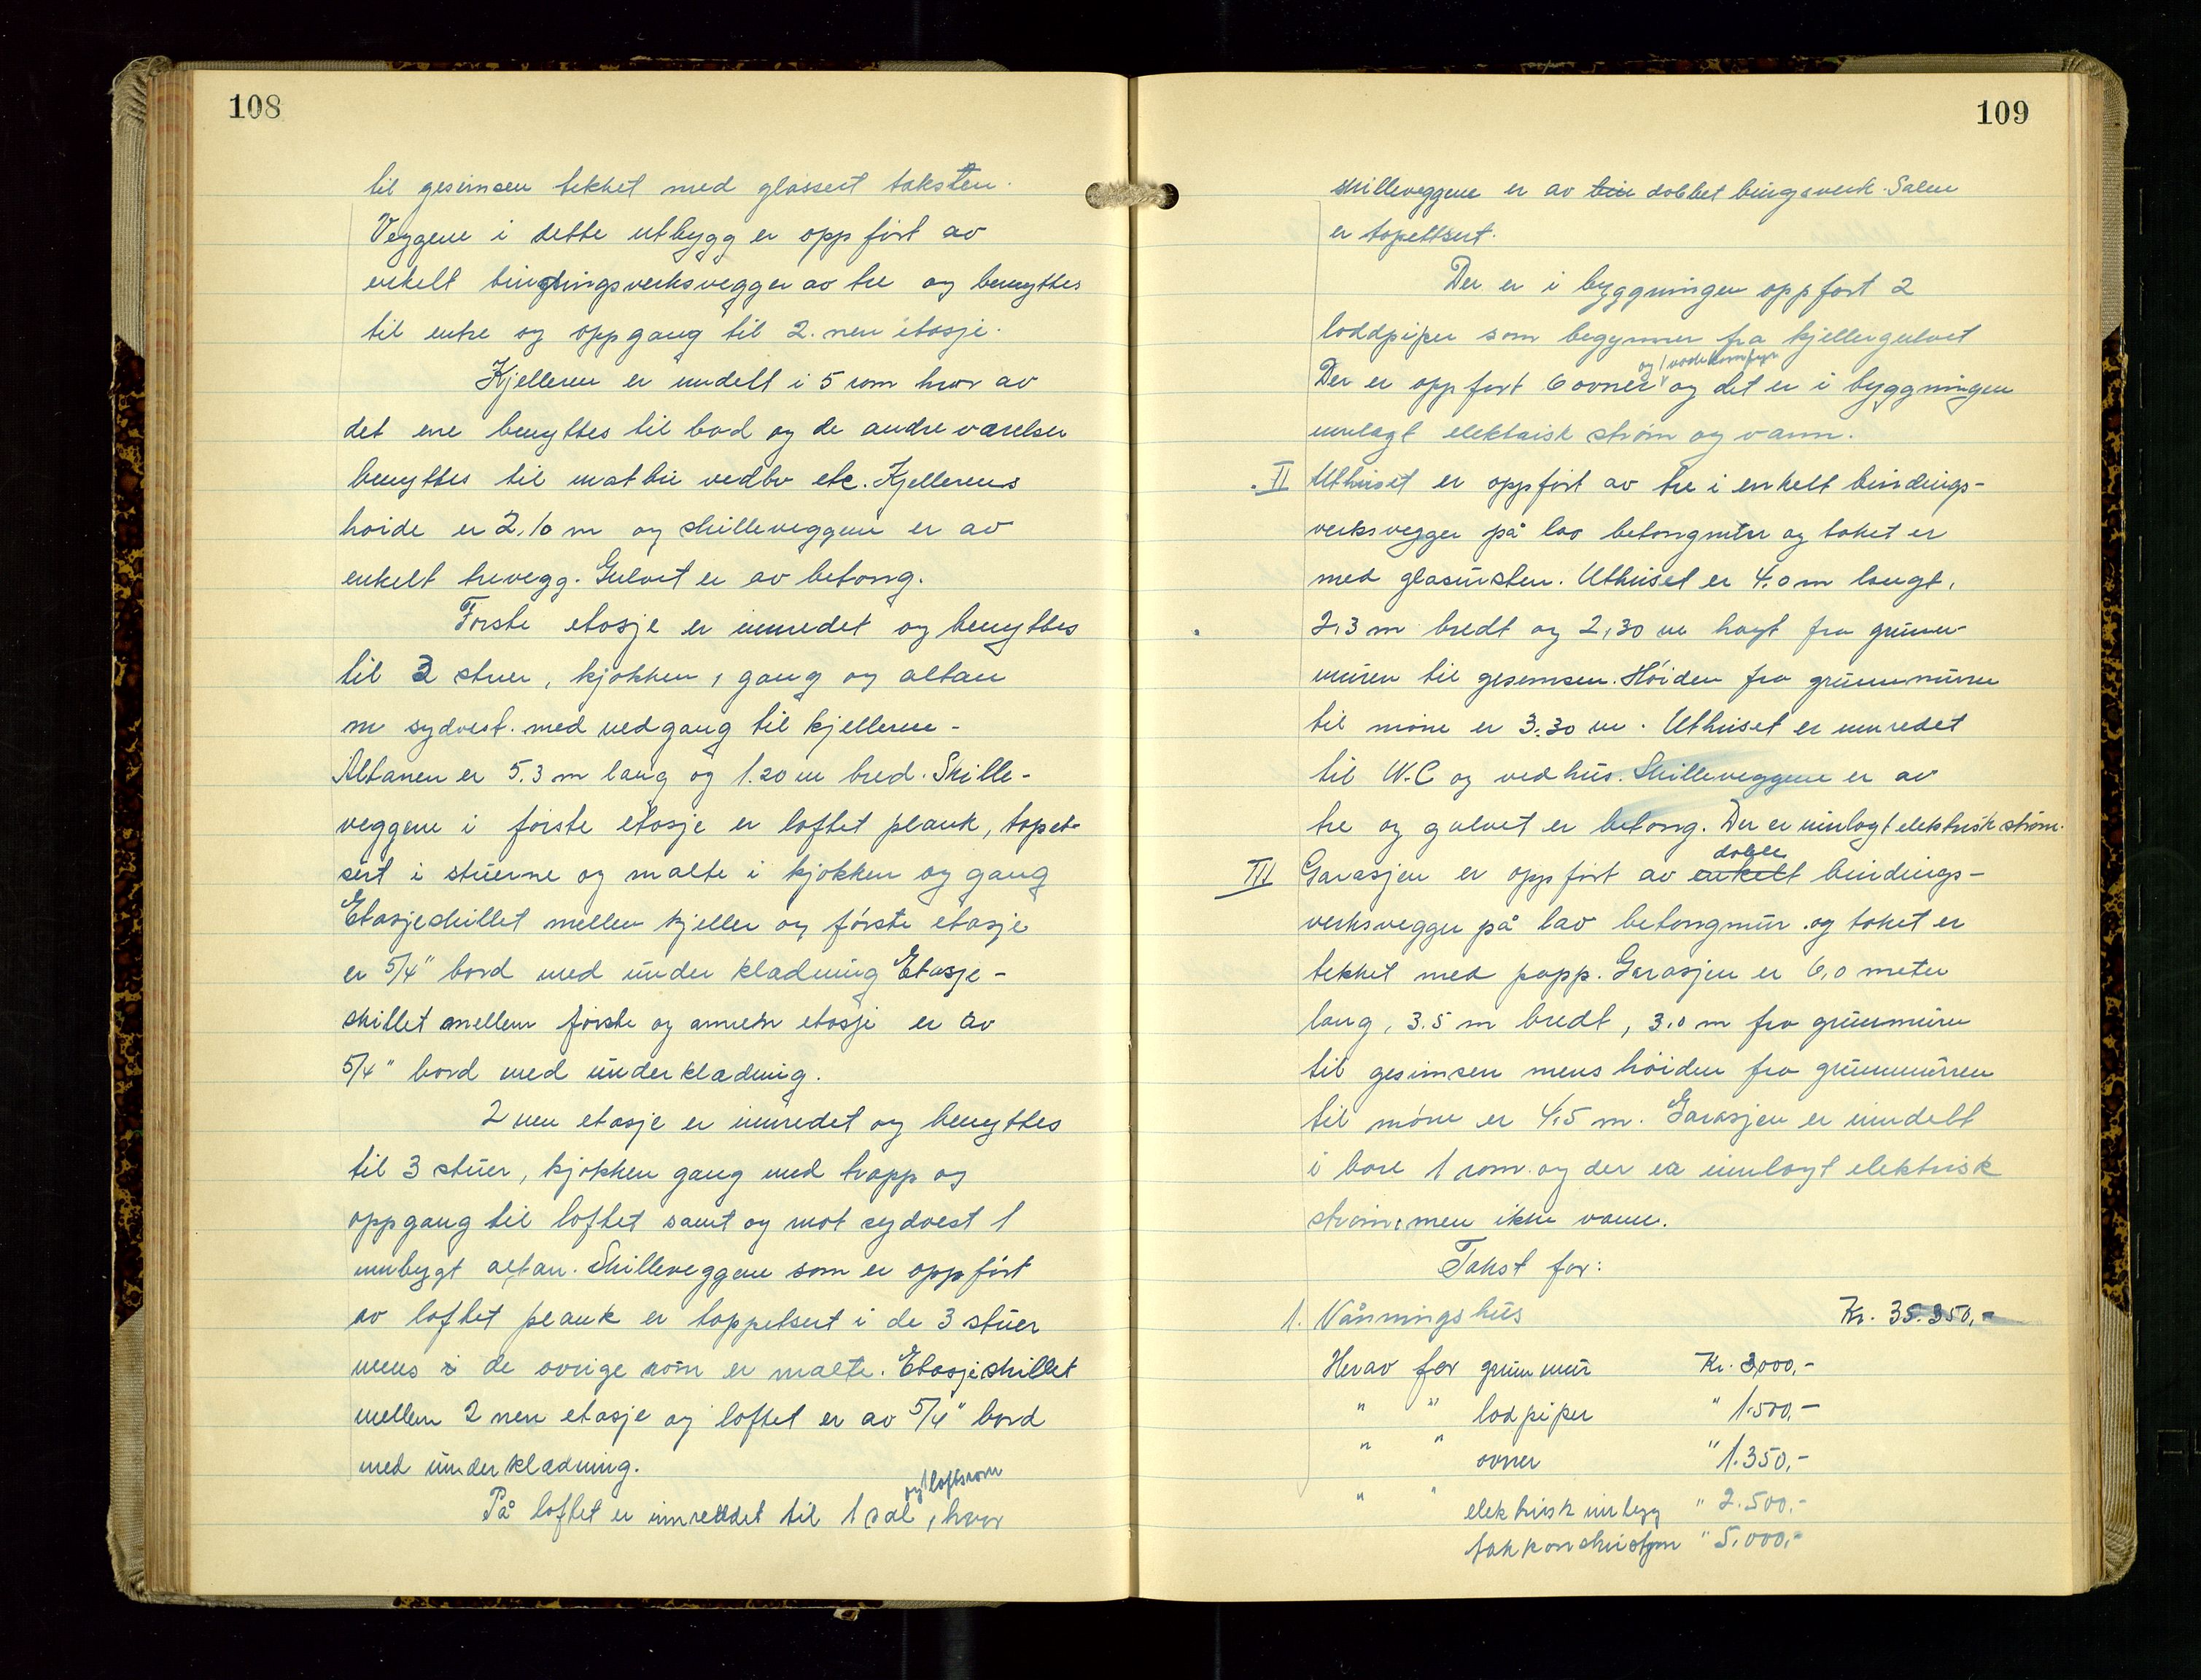 108
til gesimsen tekket med glassert taksten.
Veggene i dette utbygg er oppført av
enkelt bindingsverksvegger av tre og benyttes
til entre og oppgang til 2. nen etasje.
Kjelleren er inndelt i 5 rom hvor av
det ene benyttes til bod og de andre værelser
benyttes til matbu vedbu etc. Kjellerens
høide er 2,10 m og skilleveggene er av
enkelt trevegg. Gulvet er av betong.
Første etasje er innredet og benyttes
til 3 stuer, kjøkken, gang og altan
m sydvest. med nedgang til kjelleren-
Altanen er 5.3 m lang og 1.20 m bred. Skille-
veggene i første etasje er loftet plank, tapet-
sert i stuerne og malte i kjøkken og gang
Etasjeskillet mellem kjeller og første etasje
er 5/4" bord med under kladning Etasje-
skillet mellem første og annen etasje er av
5/4" bord med underkladning.
2 nen etasje er innredet og benyttes
til 3 stuer, kjøkken gang med trapp og
oppgang til loftet samt og mot sydvest 1
innbygt altan. Skilleveggene som er oppført
av loftet plank er tappetsert i de 3 stuer
mens i de øvrige rom er malte. Etasjeskillet
mellem 2 nen etasje og loftet er av 5/4" bord
med underkladning.
og 1 loftsrom
På loftet er innreddet til 1 sal, hvor
109
skilleveggene er av bin dobbet bingsverk. Salen
er tapettsert.
Der er i byggningen oppført 2
loddpiper som begynner fra kjellergulvet
og 1 vaskekomfyr
Der er oppført 6 ovner og det er i byggningen
innlagt elektrisk strøm og vann.
II Uthuset er oppført av tre i enkelt bindings-
verksvegger på lav betongmur og taket er
med glasursten. Uthuset er 4,0 m langt,
2,3 m bredt og 2,30 m høyt fra grunn-
muren til gesemsen. Høiden fra grunnmuren
til møne er 3.30 m. Uthuset er innredet
til W.C og vedhus. Skilleveggene er av
tre og gulvet er betong. Der er innlagt elektrisk strøm.
doble
III Garasjen er oppført av enkelt bindings-
verksvegger på lav betongmur og taket er
tekket med papp. Garasjen er 6,0 meter
lang, 3.5 m bredt, 3,0 m fra grunnmuren
til gesimsen mens høiden fra grunnmurren
til møne er 4,5 m. Garasjen er inndelt
i bare 1 rom og der er innlagt elektrisk
strøm, men ikke vann.
Takst for:
1. Vånningshus Kr. 35.350,-
Herav for grunnmur Kr. 3,000,-
" " lodpiper " 1.500,-
" " ovner " 1.350,-
" " elektrisk innlegg " 2.500,-
takkonstruksjon " 5.000,-